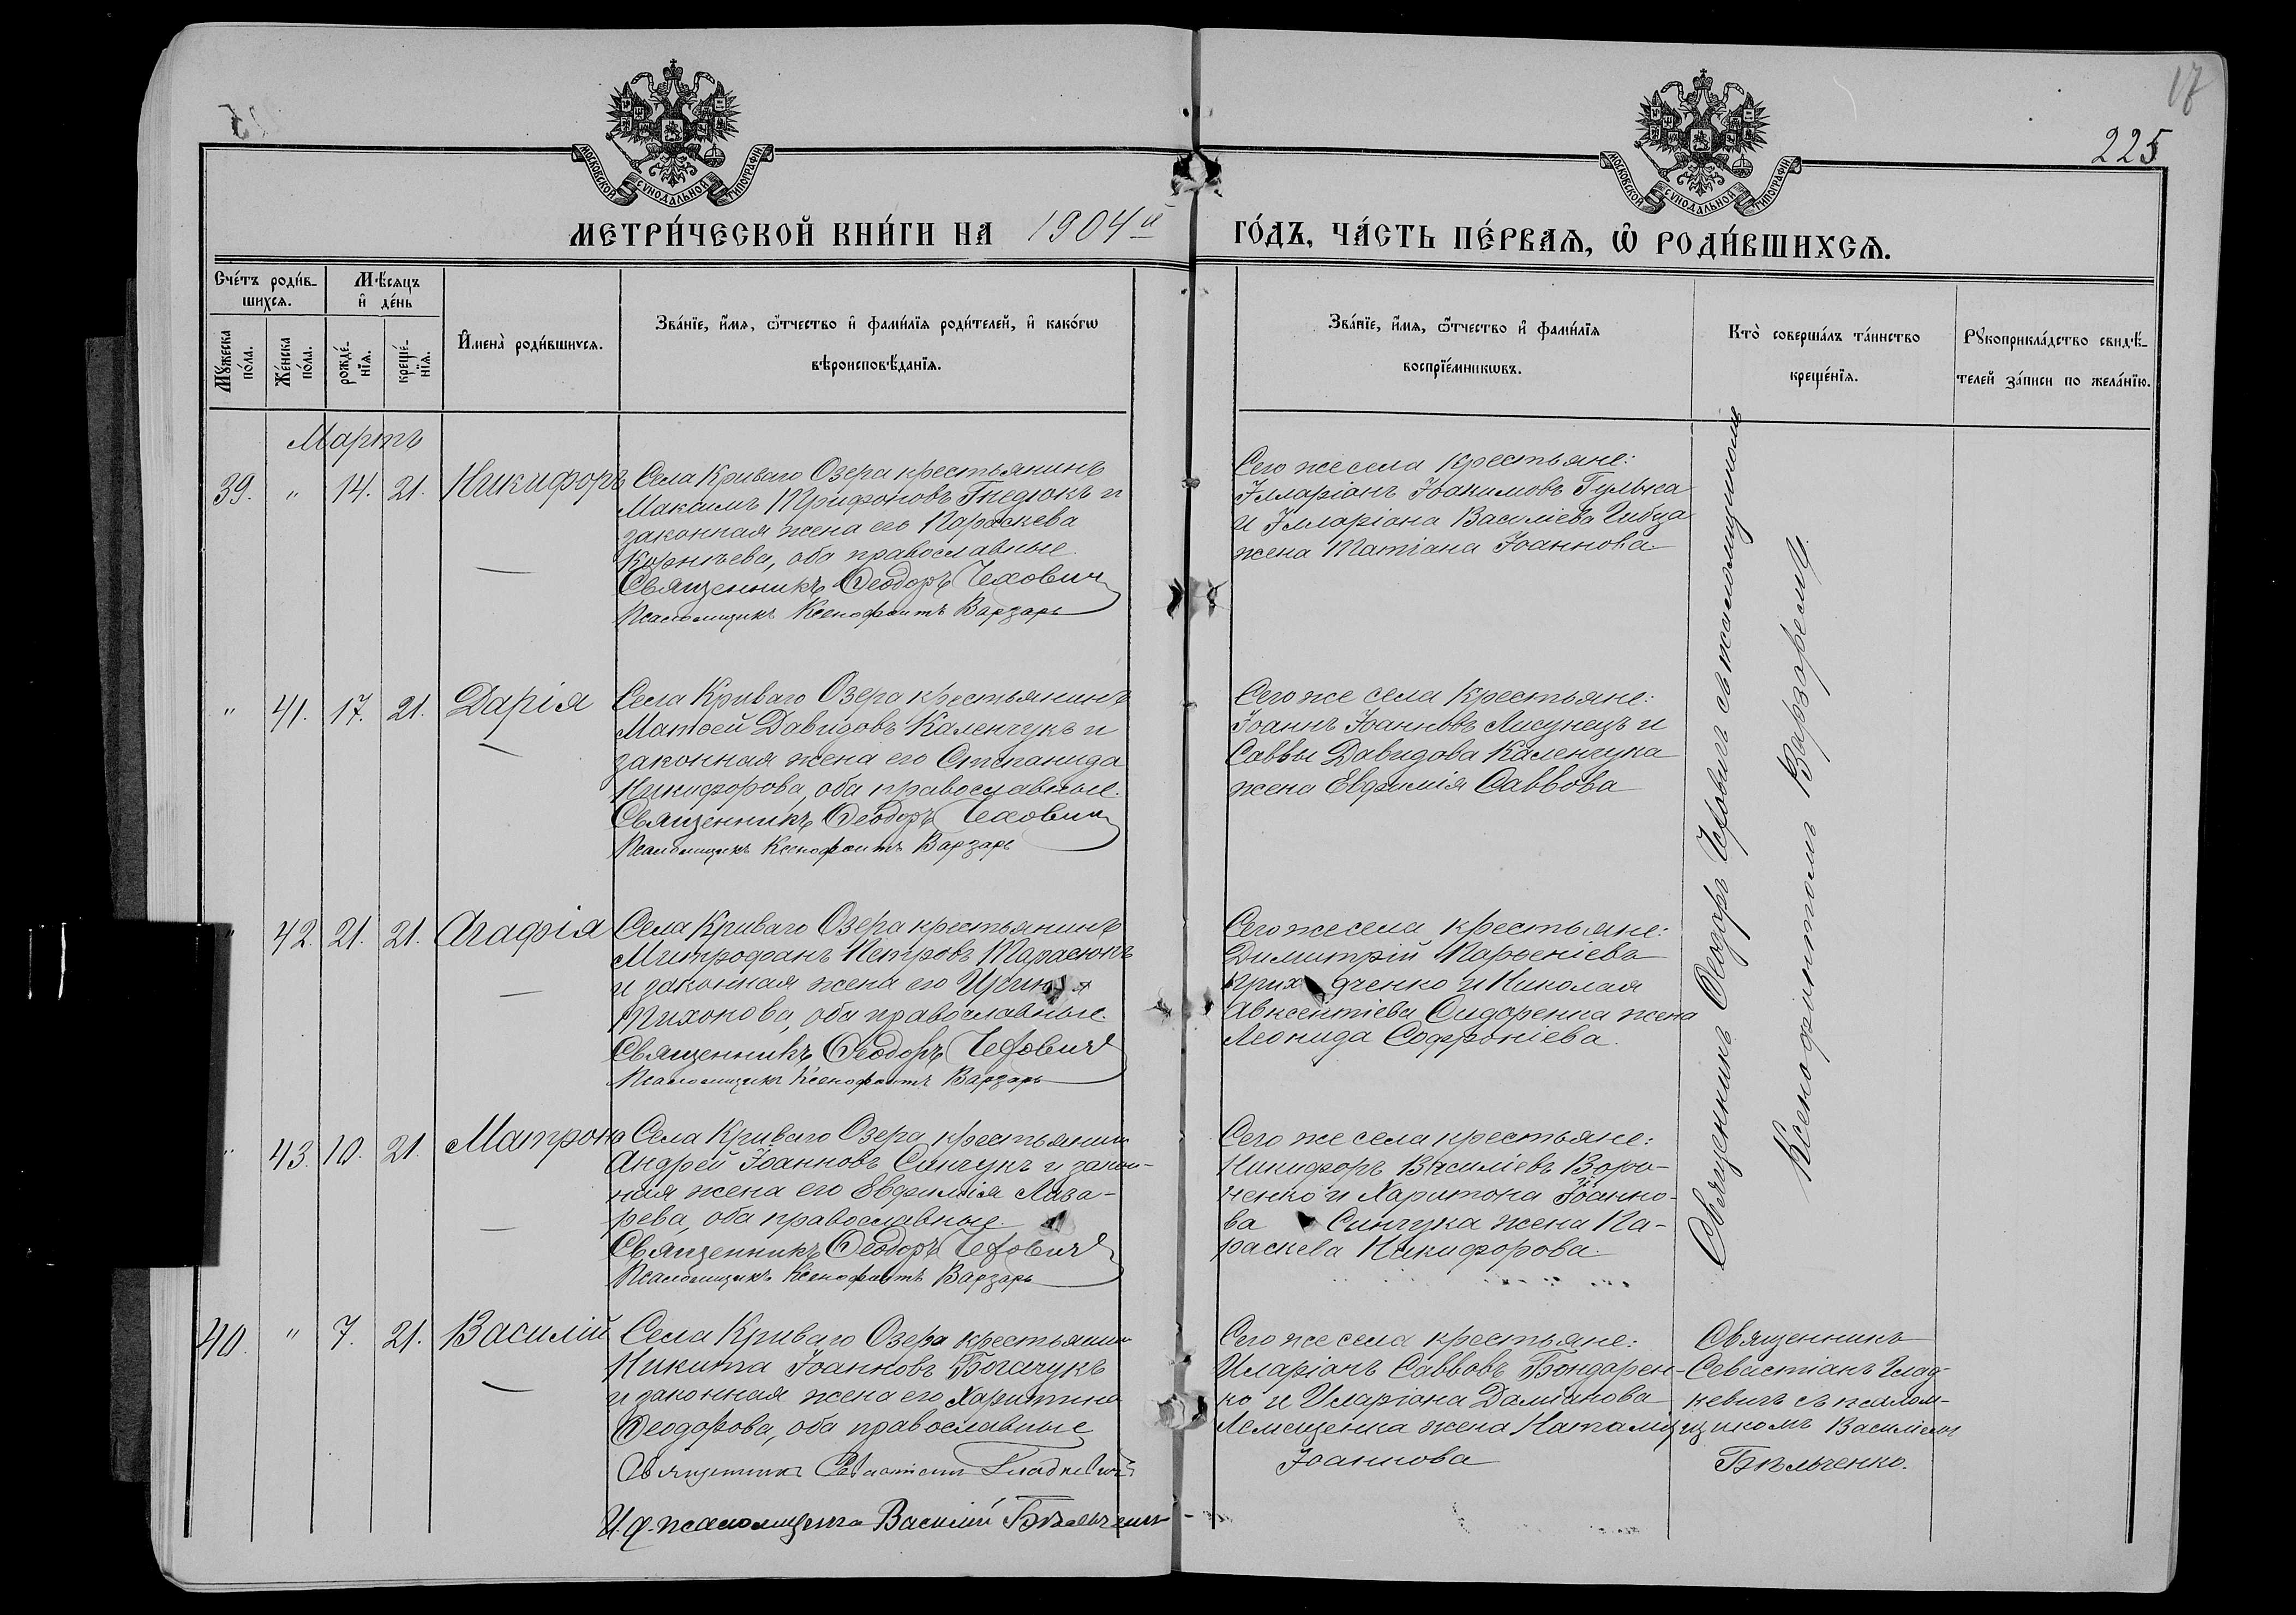 17
225
МОСКОВСКОЙ СѴНОДАЛЬНОЙ ТИПОГРАФІИ
МОСКОВСКОЙ СѴНОДАЛЬНОЙ ТИПОГРАФІИ
МЕТРИ́ЧЕСКОЙ КНИ́ГИ НА 1904й ГО́ДЪ, ЧА́СТЬ ПЕ́РВАѦ, Ѽ РОДИ́ВШИХСѦ.
Сче́тъ роди́в-
шихсѧ.
Мꙋ́жеска по́ла.
Же́нска по́ла.
Мѣ́сѧцъ и҆ де́нь
рожде́-нїѧ.
креще́-нїѧ.
И҆мена̀ роди́вшихсѧ.
Зва́нїе, и҆́мѧ, ѻ҆́тчество и҆ фами́лїѧ роди́телей, и҆ како́гѡ
вѣроисповѣ́данїѧ.
Зва́нїе, и҆́мѧ, ѻ҆́тчество и҆ фами́лїѧ
воспрїе́мникѡвъ.
Кто̀ соверша́лъ та́инство
креще́нїѧ.
Рꙋкоприкла́дство свидѣ́-
телей за́писи по жела́нїю.
Мартъ
39. " 14. 21. Никифоръ
Села Криваго Озера крестьянинъ
Максимъ Трифоновъ Гнедюкъ и
законная жена его Параскева
Корнѣева, оба православные.
Священникъ Ѳеодоръ Чехович
Псаломщикъ Ксенофонтъ Варзарь
Сего же села крестьяне:
Илларіонъ Іоакимовъ Гулька
и Илларіона Василіева
жена Татіана Іоаннова.
" 41. 17. 21. Дарія
Села Криваго Озера крестьянинъ
Матѳей Давидовъ Каленчукъ и
законная жена его Степанида
Никифорова, оба православные.
Священникъ Ѳеодоръ Чехович
Псаломщикъ Ксенофонтъ Варзарь
Сего же села крестьяне:
Іоаннъ Іоанновъ Лисунецъ и
Саввы Давидова Каленчука
жена Евфимія Саввова
" 42. 21. 21. Агафія
Села Криваго Озера крестьянинъ
Митрофанъ Петровъ Тарасюкъ
и законная жена его
Тихонова, оба православные.
Священникъ Ѳеодоръ Чехович
Псаломщикъ Ксенофонтъ Варзарь
Сего же села крестьяне:
Димитрій Парѳеніевъ
и Николая
Авксентіева Сидоренка жена
Леонида Софроніева.
" 43. 10. 21. Матрона
Села Криваго Озера крестьянинъ
Андрей Іоанновъ Синчукъ и закон-
ная жена его Евфимія Лаза-
рева, оба православные.
Священникъ Ѳеодоръ Чехович
Псаломщикъ Ксенофонтъ Варзарь
Сего же села крестьяне:
Никифоръ Василіевъ Воро-
ненко и Харитона Іоанно-
ва Синчука жена Па-
раскева Никифорова.
Священникъ Ѳеодоръ Чеховичъ съ псаломщикомъ
Ксенофонтомъ Варзаремъ.
40. " 7. 21. Василій
Села Криваго Озера крестьянинъ
Никита Іоанновъ Богачукъ
и законная жена его Харитина
Ѳеодорова, оба православные
Священникъ Севастіанъ Гладкевичъ
И. д. псаломщика Василій Бѣльченко
Сего же села крестьяне:
Иларіонъ Саввовъ Бондарен-
ко и Иларіона Даміанова
Лемещенка жена Наталія
Іоаннова
Священникъ
Севастіанъ Глад-
кевичъ съ псалом-
щикомъ Василіемъ
Бѣльченко.